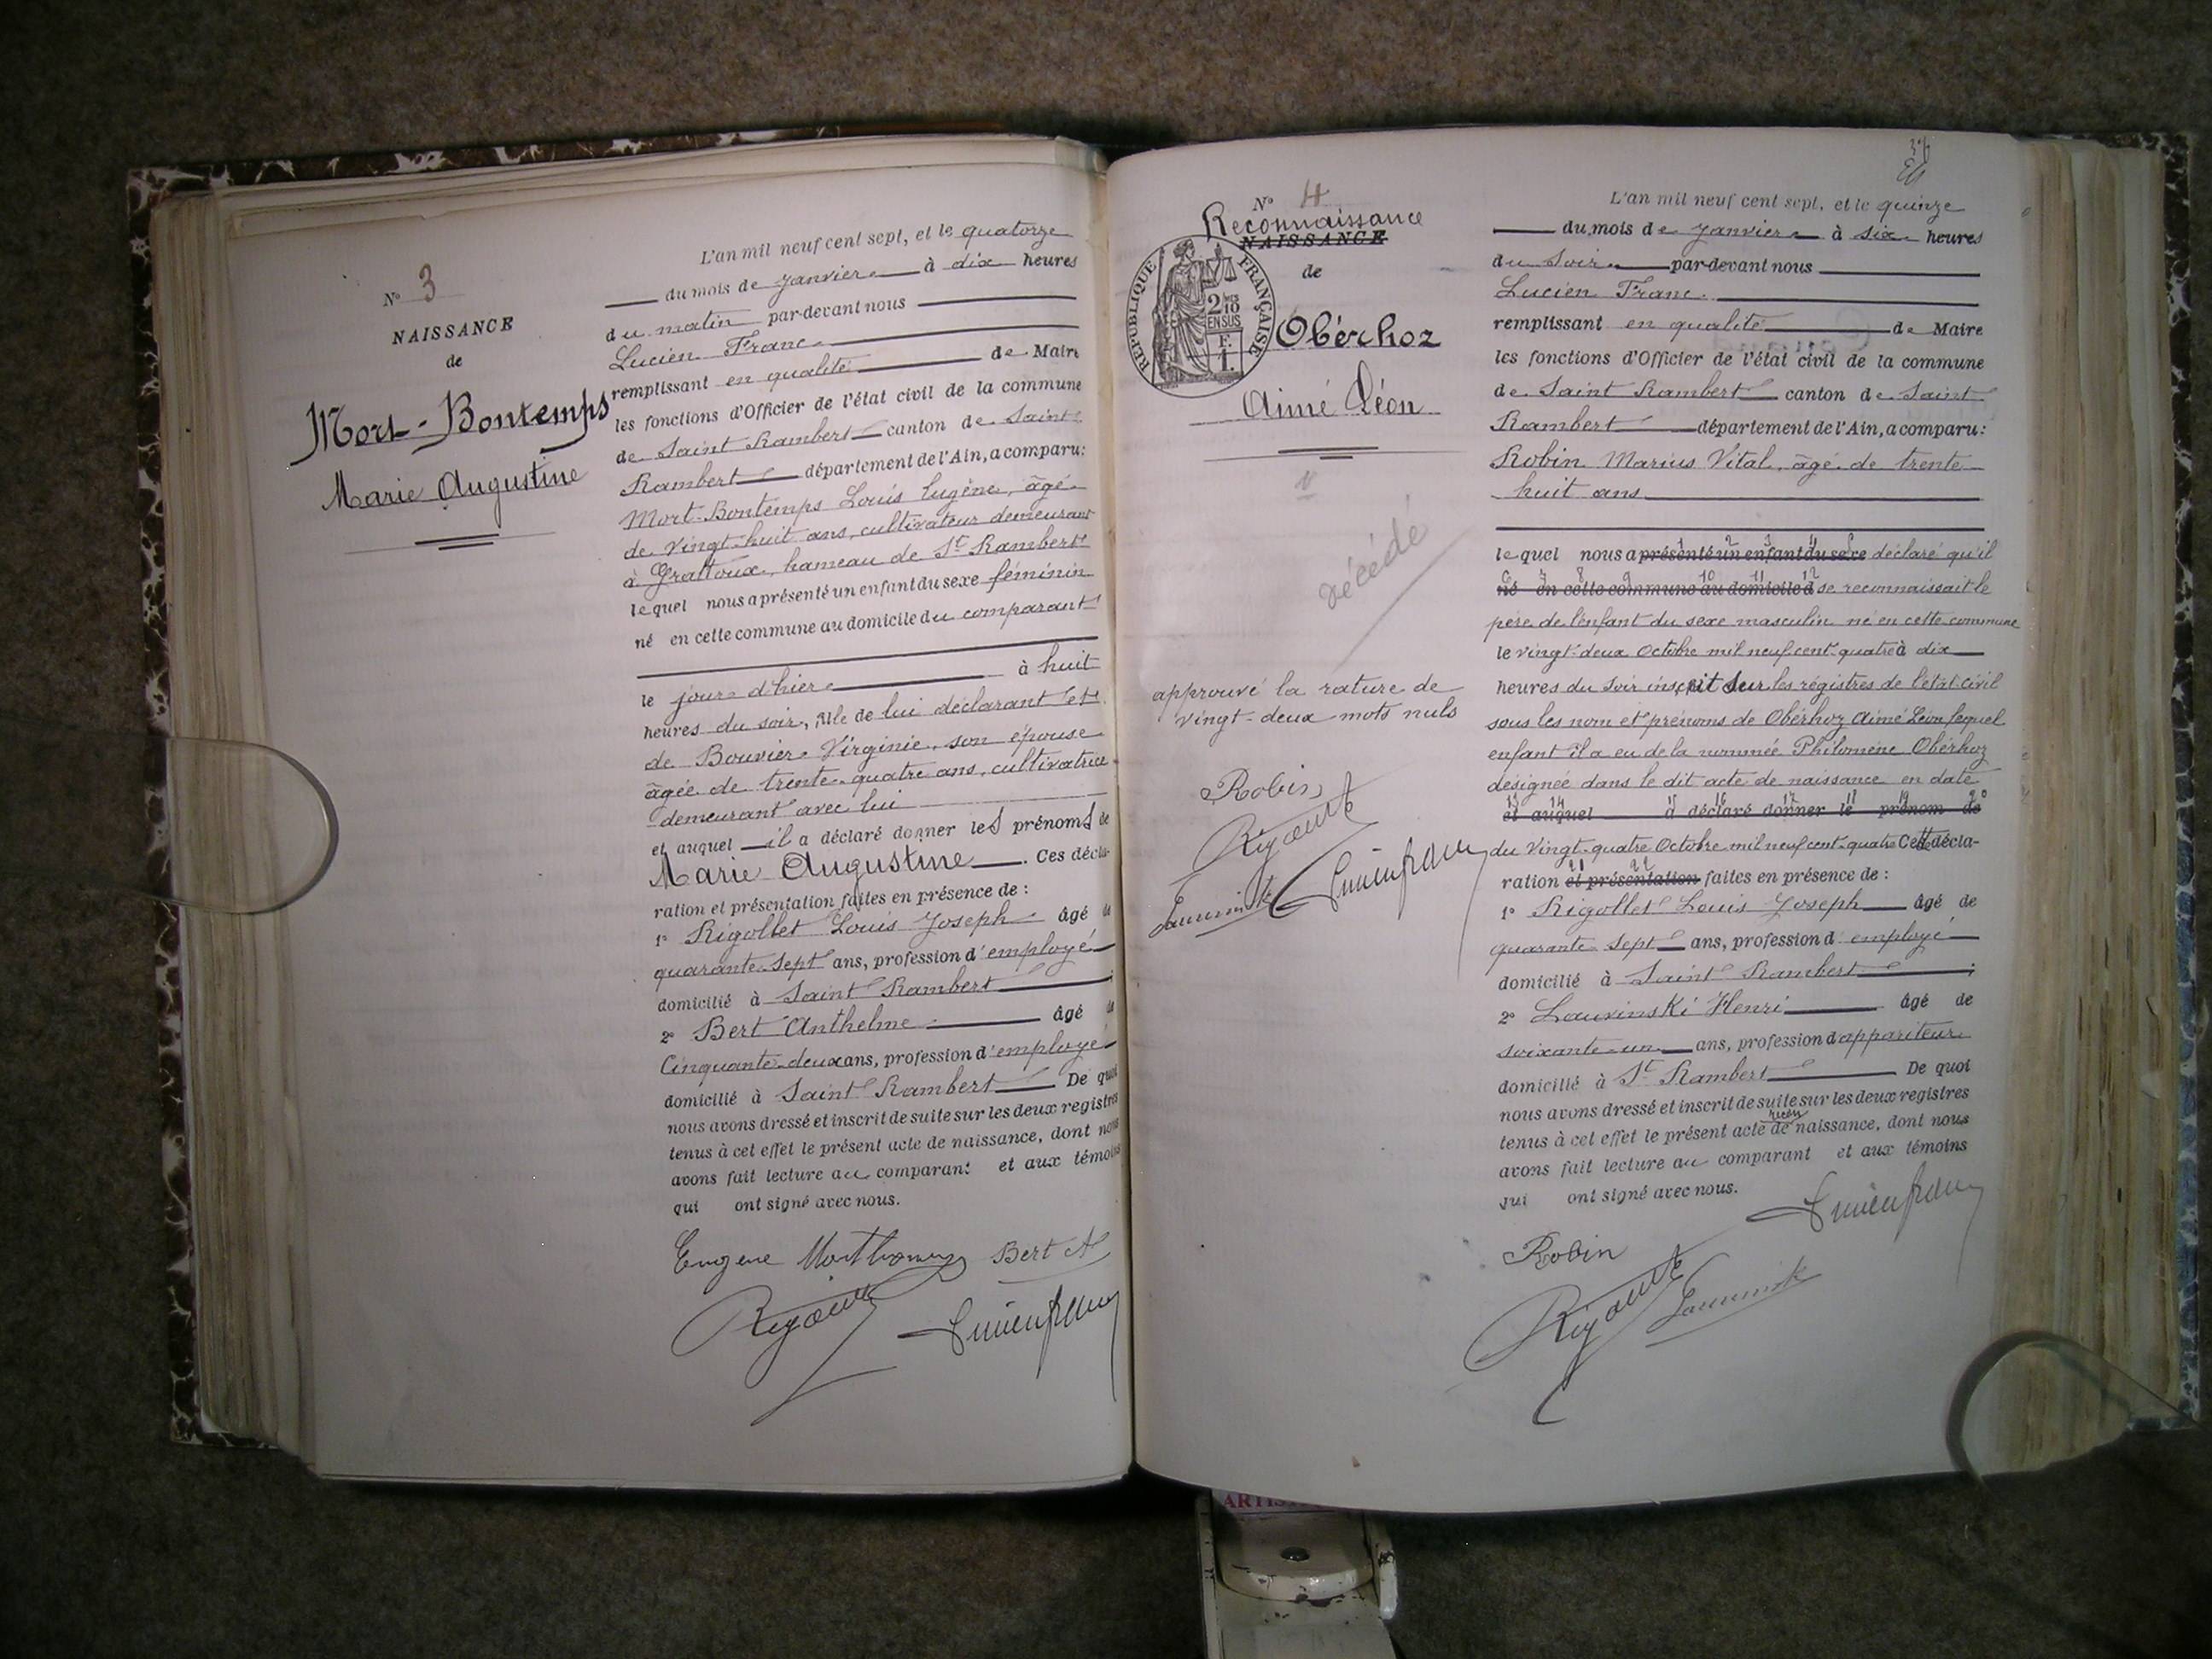 N° 3
NAISSANCE
de
Mort-Bontemps
Marie Augustine
L'an mil neuf cent sept, et le quatorze
du mois de Janvier à dix heures
du matin par-devant nous
Lucien Franc
remplissant en qualité de Maire
les fonctions d'Officier de l'état civil de la commune
de Saint Rambert canton de Saint
Rambert département de l'Ain, a comparu:
Mort-Bontemps Louis Eugène, âgé
de vingt-huit ans, cultivateur demeurant
à Grattoux, hameau de St Rambert
lequel nous a présenté un enfant du sexe féminin
né en cette commune au domicile du comparant
le jour d'hier à huit
heures du soir, fille de lui déclarant et
de Bouvier Virginie, son épouse
âgée de trente-quatre ans, cultivatrice
demeurant avec lui
et auquel il a déclaré donner les prénoms de
Marie Augustine. Ces décla-
ration et présentation faites en présence de :
1° Rigollet Louis Joseph âgé de
quarante-sept ans, profession d'employé
domicilié à Saint Rambert ;
2° Bert Anthelme âgé de
Cinquante-deux ans, profession d'employé
domicilié à Saint Rambert De quoi
nous avons dressé et inscrit de suite sur les deux registres
tenus à cet effet le présent acte de naissance, dont nous
avons fait lecture au comparant et aux témoins
qui ont signé avec nous.
Eugène Bert A
N° 4
Reconnaissance
NAISSANCE
de
RÉPUBLIQUE FRANÇAISE
2/10
EN SUS
F.
1.
Obérhoz
Aimé Léon
décédé
approuvé la rature de
vingt-deux mots nuls
Robin
Lucien Franc
L'an mil neuf cent sept, et le quinze
du mois de Janvier à six heures
du soir par-devant nous
Lucien Franc
remplissant en qualité de Maire
les fonctions d'Officier de l'état civil de la commune
de Saint Rambert canton de Saint
Rambert département de l'Ain, a comparu:
Robin Marius Vital, âgé de trente
huit ans
1 2 3 4 5
lequel nous a présenté un enfant du sexe déclaré qu'il
6 7 8 9 10 11 12
né en cette commune au domicile d se reconnaissait le
père de l'enfant du sexe masculin né en cette commune
le vingt-deux Octobre mil neuf cent quatre à dix
heures du soir inscrit sur les régistres de l'état-civil
sous les nom et prénoms de Obérhoz Aimé Léon lequel
enfant il a eu de la nommée Philomène Obérhoz
désignée dans le dit acte de naissance en date
13 14 15 16 17 18 19 20
et auquel a déclaré donner le prénom de
du vingt-quatre Octobre mil neuf cent-quatre Cette décla-
21 22
ration et présentation faites en présence de :
1° Rigollet Louis Joseph âgé de
quarante sept ans, profession d'employé
domicilié à Saint Rambert ;
2° Lauvinski Henri âgé de
soixante-un ans, profession d'appariteur
domicilié à St Rambert De quoi
nous avons dressé et inscrit de suite sur les deux registres
tenus à cet effet le présent acte de naissance, dont nous
avons fait lecture au comparant et aux témoins
qui ont signé avec nous.
Lucien Franc
Robin